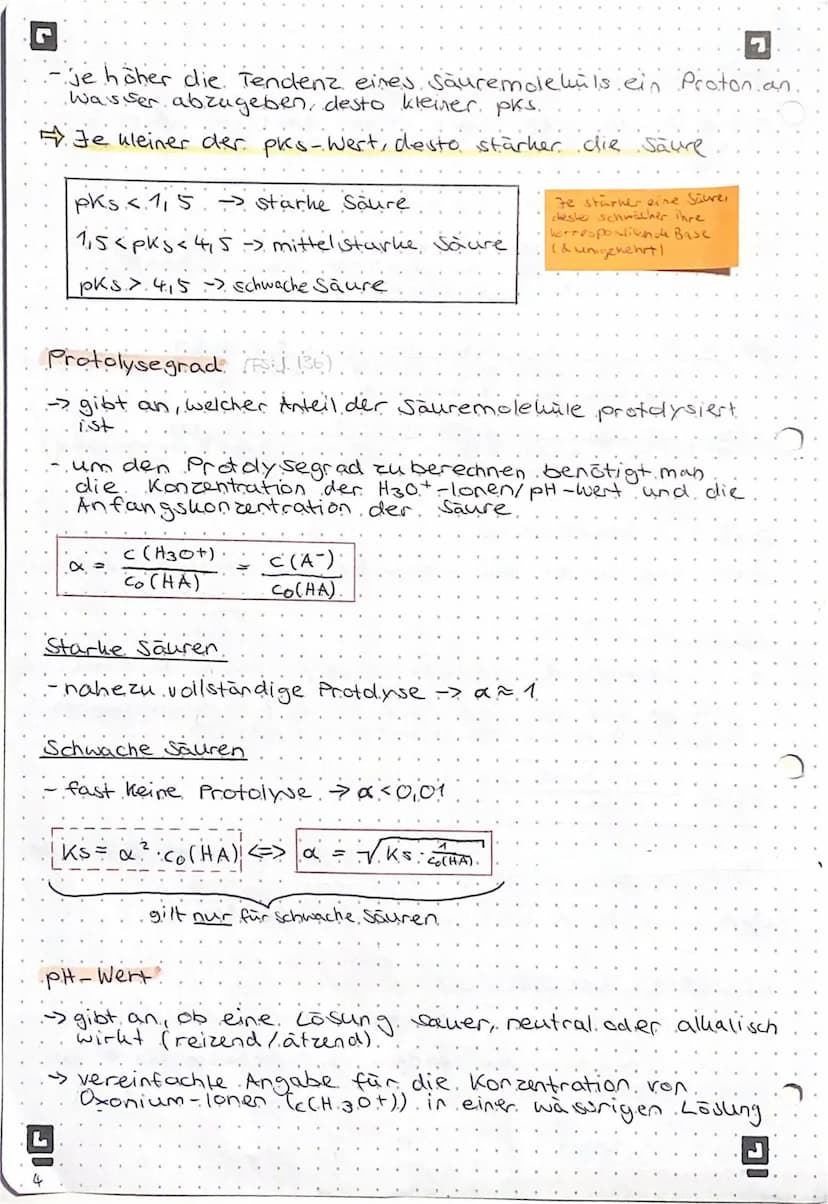 - je höher die Tendenz eines Säuremoleküls ein Proton an
Wasser abzugeben, desto kleiner pKs.
⇒ Je kleiner der pKs-Wert, desto stärker die Säure
pKs < 1,5 → starke Säure
1,5 < pKs < 4,5 → mittelstarke Säure
pKs > 4,5 → schwache Säure
Je stärker eine Säure,
desto schwächer ihre
korrespondierende Base
(& umgekehrt)
Protolysegrad
→ gibt an, welcher Anteil der Säuremoleküle protolysiert
ist
- um den Protolysegrad zu berechnen benötigt man
die Konzentration der H3O+-Ionen/pH-Wert und die
Anfangskonzentration der Säure
α = c(H3O+)/c0(HA) = c(A-)/c0(HA)
Starke Säuren
- nahezu vollständige Protolyse → α ≈ 1
Schwache Säuren
- fast keine Protolyse → α < 0,01
Ks = α² · c0(HA) <=> α = √Ks · 1/c0(HA)
gilt nur für schwache Säuren
pH-Wert
→ gibt an, ob eine Lösung sauer, neutral oder alkalisch
wirkt (reizend/ätzend)
→ vereinfachte Angabe für die Konzentration von
Oxonium-Ionen (c(H3O+)) in einer wässrigen Lösung
4